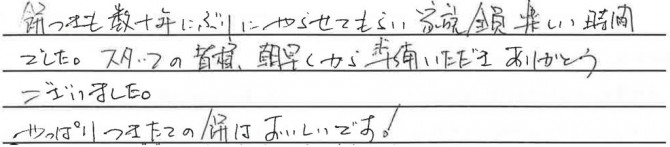 餅つきも数十年にぶりにやらせてもらい家族全員楽しい時間
でした。スタッフの皆様、朝早くから準備いただき ありがとう
ございました。
やっぱりつきたての餅はおいしいです!